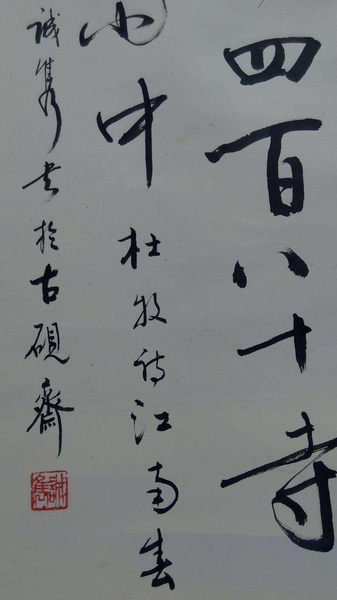 四百八十寺
雨中 杜牧诗江南春
诚隽书于古砚斋
诚隽